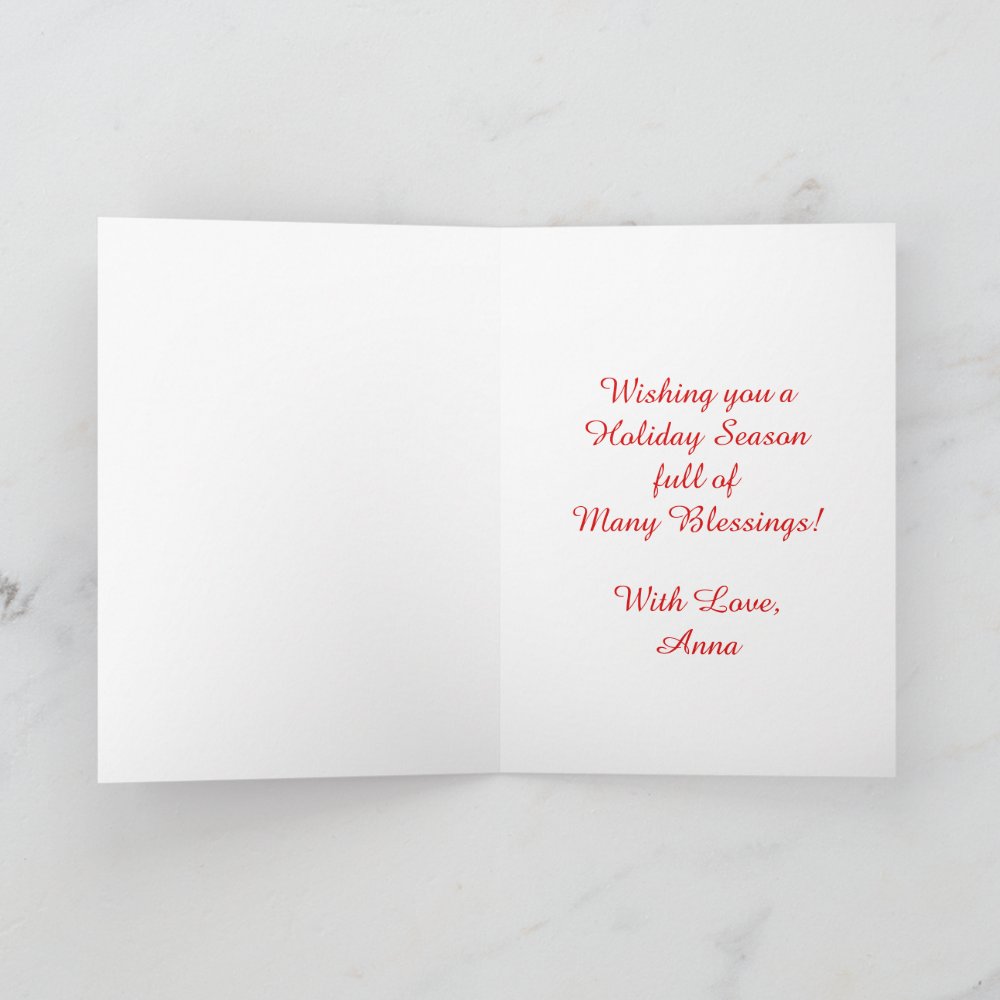 Wishing you a
Holiday Season
full of
Many Blessings!
With Love,
Anna